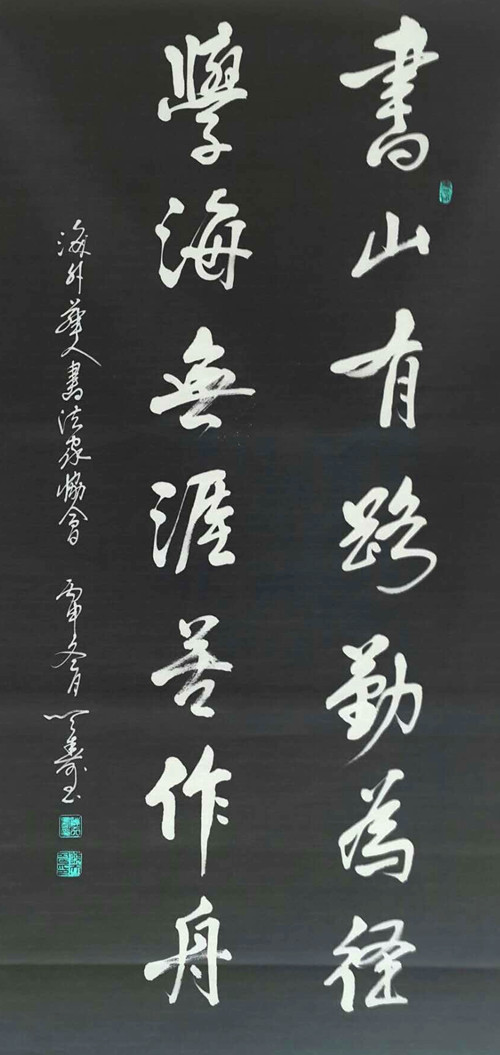 書山有路勤為径
學海無涯苦作舟
海外華人書法家協會